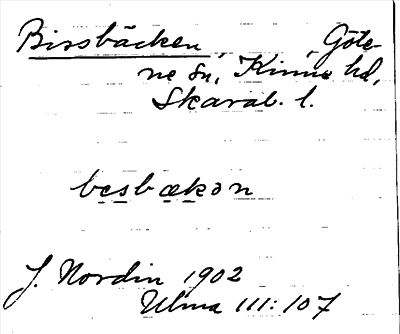 Bissbäcken, Göte-
ne sn, Kinne hd,
Skarab. l.
besbækon
J. Nordin 1902
Ulma 111:107